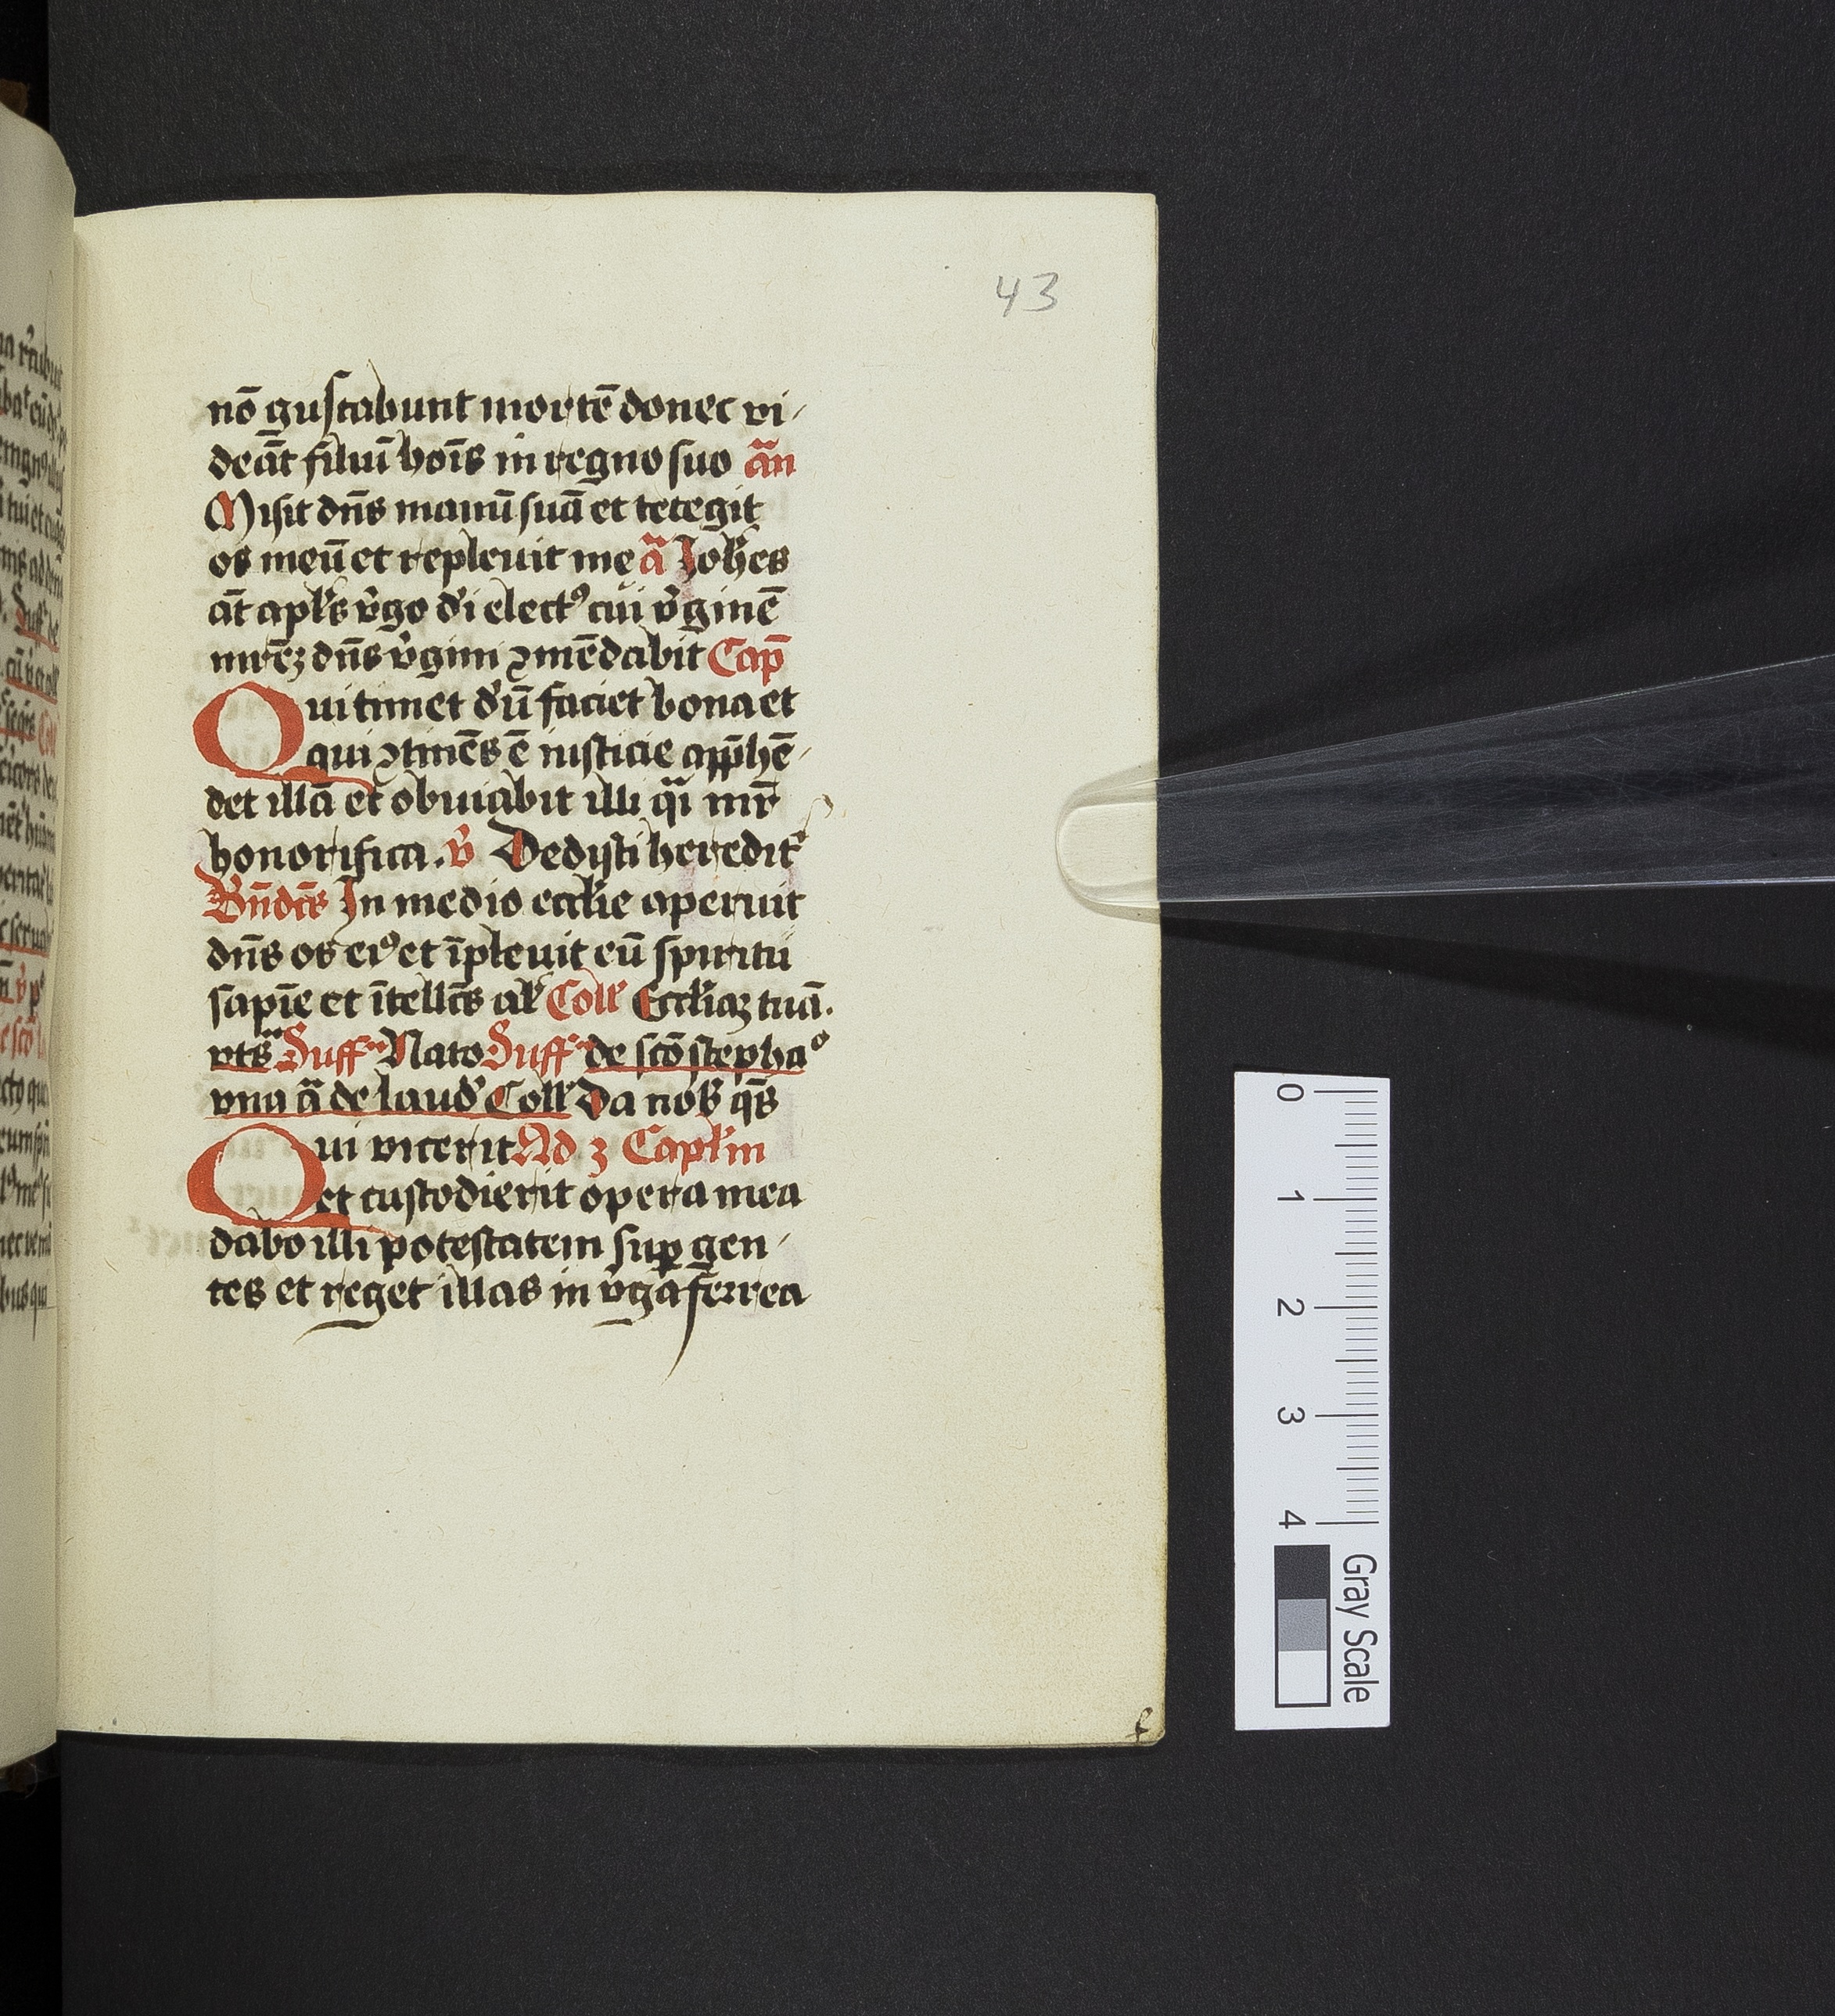 43
nō gustabunt mortē donec vi-
deāt filiū hoīs in regno suo ān
Misit dn̄s manū suā et tetegit
os meū et repleuit me ā Joh̄es
āt apl̄s v̄go di elect⁹ cui v̄ginē
mrēꝫ dn̄s v̄gini ꝯmēdabit Cap̄
Qui timet dūm faciet bona et
qui ꝯtinēs ē iusticie app̄hē-
det illā et obuiabit illi qͣi mr̄
honorifica. v̄ Dedisti heredit
Bn̄dcs̄ In medio eccl̄ie aperuit
dn̄s os ei⁹ et īpleuit eū spiritu
sapīe et ītellcs̄ al̄ Coll̄ Eccl̄iaꝫ tuā.
vts̄ Suff Nato Suff de scō stephaº
vna ā de laud Coll̄ Da nob̄ qs̄
Qui vicerit Ad 3 Capl̄m
et custodierit opera mea
dabo illi potestatem suꝑ gen-
tes et reget illas in v̄ga ferrea
0
1
2
3
4
Gray Scale